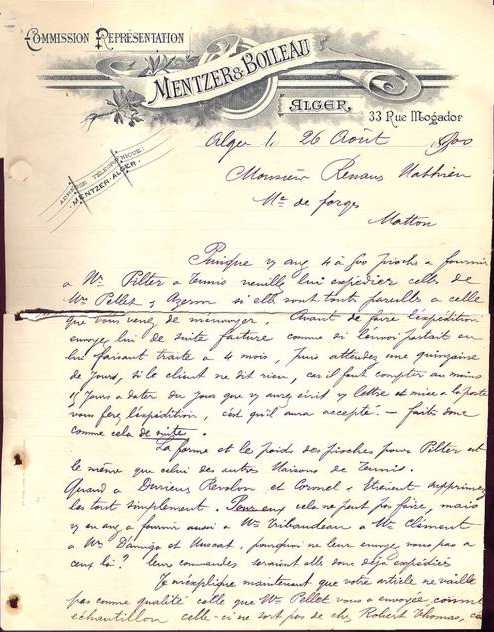 COMMISSION REPRÉSENTATION
MENTZER & BOILEAU
ALGER,
33 Rue Mogador
ADRESSE TÉLÉGRAPHIQUE:
MENTZER-ALGER.
Alger, 26 Août 1900
Monsieur Renaus Mathieu
Me de forges
Matton
Puisque vs avez 4 à 500 pioches à fournir
a Mr Pilter a Tunis veuillez lui expédier celles de
Mr Pellet si elles sont toute pareille a celle
que vous venez de m'envoyer. Avant de faire l'expédition
envoyez lui de suite facture comme si l'envoi partait en
lui faisant traite a 4 mois, puis attendez une quinzaine
de jours, si le client ne dit rien, car il faut compter au moins
jours a dater du jour que vs aurez écrit vs lettre et mise a la poste
vous ferez l'expédition, c'est qu'il aura accepté - faites donc
comme cela de suite.
La forme et le poids des pioches pour Pilter est
le même que celui des autres Maisons de Tunis.
Quand a et supprimez
les tout simplement. cela ne peut pas faire, mais
vs en avez a fournir aussi a Mr a Mr Clément
a Mr et Muscat, pourquoi ne leur envoyez vous pas a
ceux là? leurs commandes seraient elle donc déjà expédiées
Je m'explique maintenant que votre article ne vaille
pas comme qualité celle que Mr Pellet vous a envoyée comme
échantillon celle-ci ne sort pas de chez Robert Thomas,